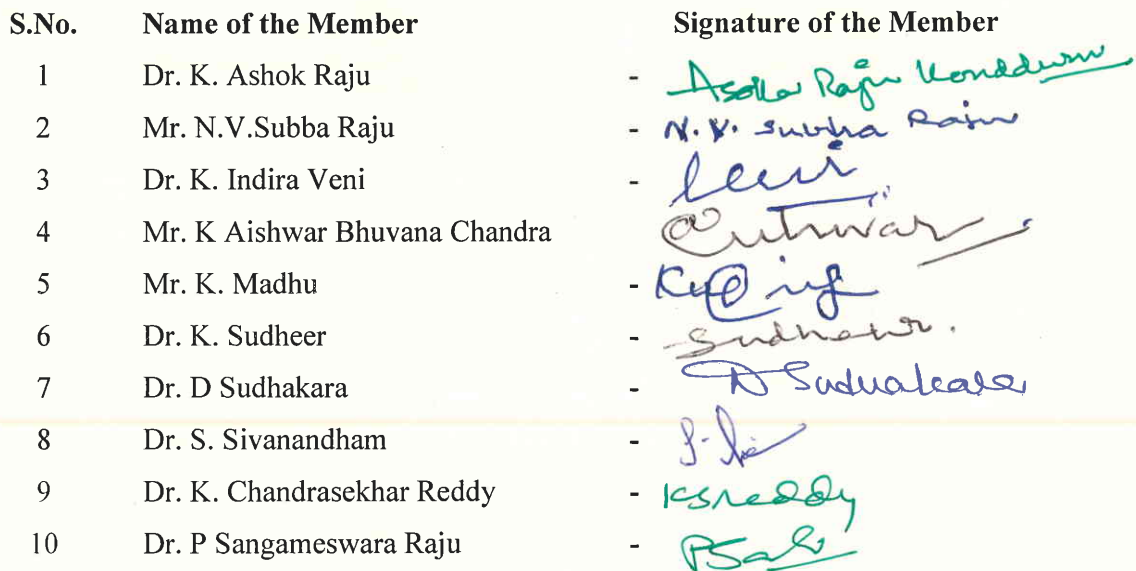 S.No. Name of the Member Signature of the Member
1 Dr. K. Ashok Raju - Asoka Raju Konddurn
2 Mr. N.V.Subba Raju - N.V. Subba Raju
3 Dr. K. Indira Veni -
4 Mr. K Aishwar Bhuvana Chandra
5 Mr. K. Madhu -
6 Dr. K. Sudheer - Sudheer.
7 Dr. D Sudhakara - D Sudhakara
8 Dr. S. Sivanandham -
9 Dr. K. Chandrasekhar Reddy - KSReddy
10 Dr. P Sangameswara Raju -